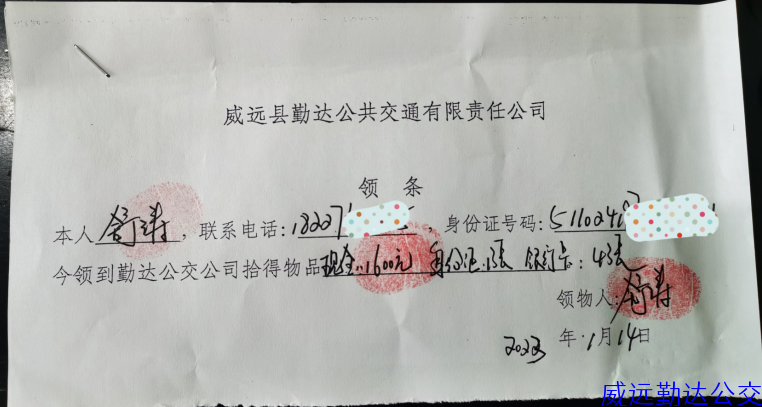 威远县勤达公共交通有限责任公司
领条
本人舒涛,联系电话:18227,身份证号码:511024
今领到勤达公交公司拾得物品现金:1600元 身份证:1张 银行卡:4张
领物人:舒涛
2023年1月14日
威远勤达公交